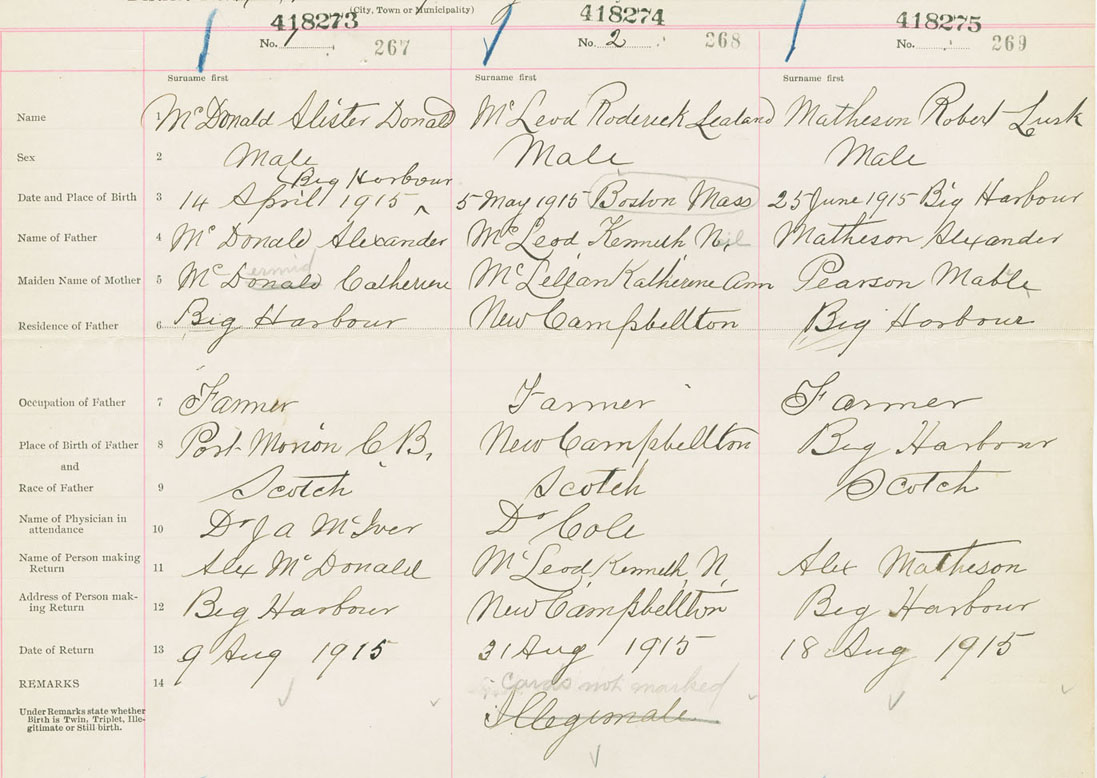 (City, Town or Municipality)
418273 418274 418275
No. 1 267 No. 2 268 No. 269
Surname first Surname first Surname first
Name 1 McDonald Alister Donald McLeod Roderick Lealand Matheson Robert Lusk
Sex 2 Male Male Male
Big Harbour
Date and Place of Birth 3 14 April 1915 ^ 5 May 1915 Boston Mass 25 June 1915 Big Harbour
Name of Father 4 McDonald Alexander McLeod Kenneth Neil Matheson Alexander
ermid
Maiden Name of Mother 5 McDonald Catherine McLellan Katherine Ann Pearson Mable
Residence of Father 6 Big Harbour New Campbellton Big Harbour
Occupation of Father 7 Farmer Farmer Farmer
Place of Birth of Father 8 Port Morion C.B. New Campbellton Big Harbour
and
Race of Father 9 Scotch Scotch Scotch
Name of Physician in
attendance 10 Dr J A McIver Dr Cole
Name of Person making
Return 11 Alex McDonald McLeod, Kenneth, N, Alex Matheson
Address of Person mak-
ing Return 12 Big Harbour New Campbellton Big Harbour
Date of Return 13 9 Aug 1915 31 Aug 1915 18 Aug 1915
REMARKS 14 Cards not marked
Under Remarks state whether
Birth is Twin, Triplet, Ille-
gitimate or Still birth.
Illegimate